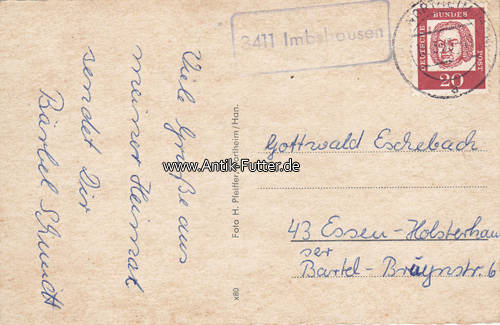 3411 Imbshausen
DEUTSCHE BUNDESPOST
20
Viele Grüße aus
meiner Heimat
sendet Dir
Bärbel Schmidt
www.Antik-Futter.de
Foto H. Pfeiffer, Northeim/Han.
x80
Gottwald Eschebach
43 Essen-Holsterhau
ser
Bartel-Bruynstr. 6